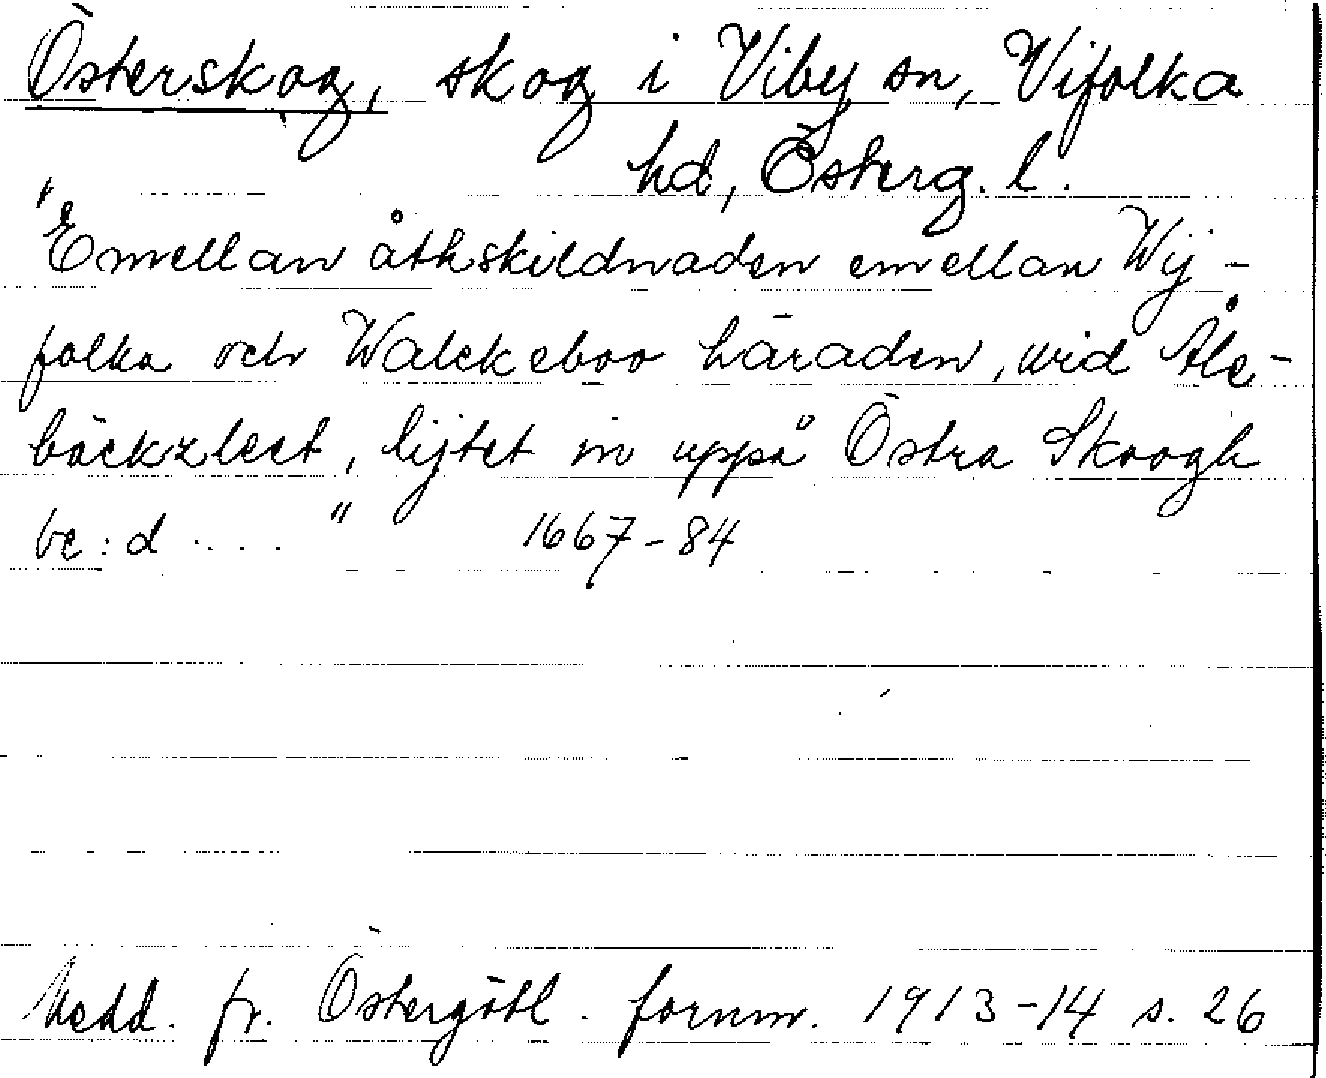 Österskog, skog i Viby sn, Vifolka
hd, Österg. l.
"Emellan åthskildnaden emellan Wij-
folka och Walckeboo häraden, wid Åle-
bäckzleet, lijtet in uppå Östra Skoogh
be:d .... " 1667-84
Medd. fr. Östergötl. fornm. 1913-14 s. 26